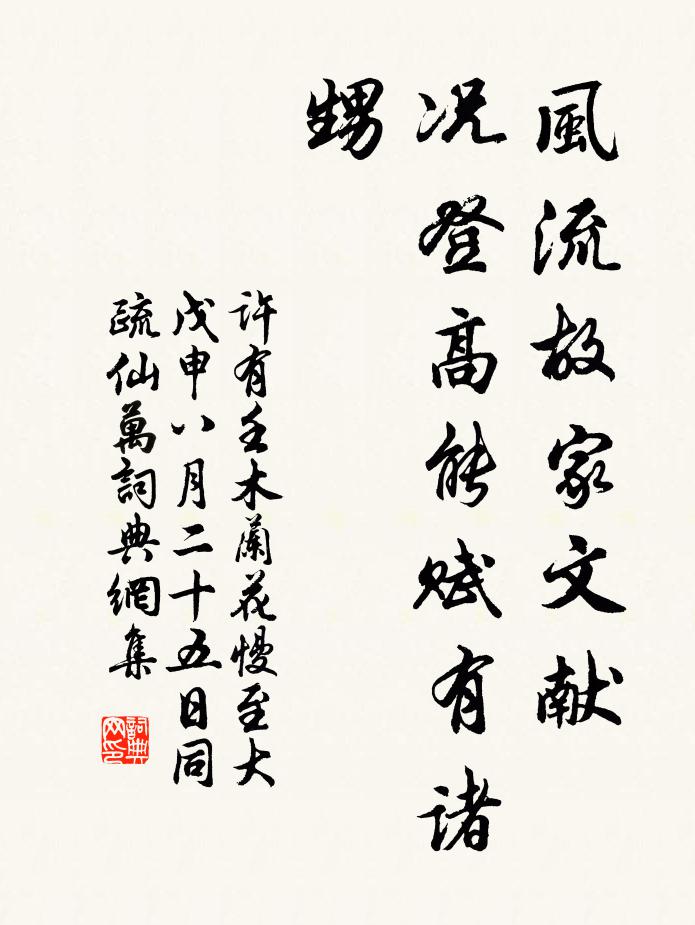 風流故家文献
况登高能赋有诸
甥
許有壬木蘭花慢至大
戊申八月二十五日同
疏仙萬詞典網集
詞典網印